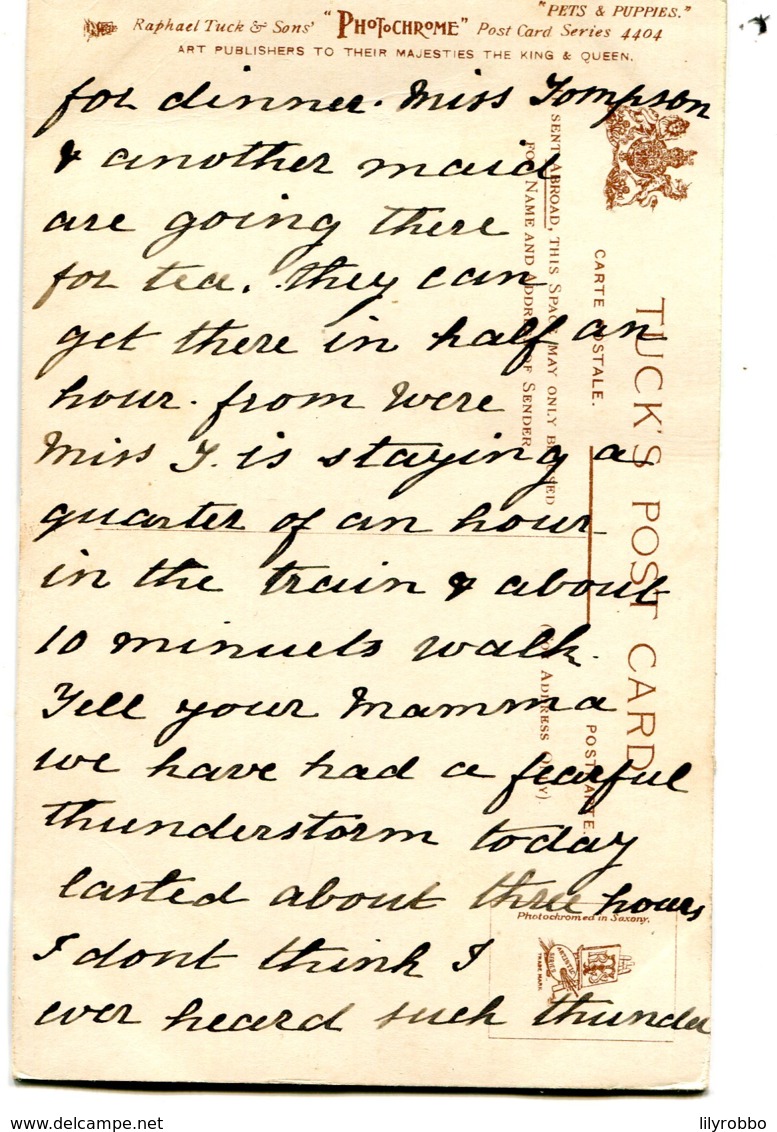 "PETS & PUPPIES."
Raphael Tuck & Sons' "PHOTOCHROME" Post Card Series 4404
ART PUBLISHERS TO THEIR MAJESTIES THE KING & QUEEN.
for dinner. Miss Tompson
& another maid
are going there
for tea. they can
get there in half an
hour. from were
Miss T. is staying a
quarter of an hour
in the train & about
10 minuets walk.
Tell your Mamma
we have had a fearful
thunderstorm today
lasted about three hours
I dont think I
ever heard such thunder
TUCK'S POST CARD
CARTE POSTALE.
POSTKARTE.
SENT ABROAD, THIS SPACE MAY ONLY BE USED
FOR NAME AND ADDRESS OF SENDER
(FOR ADDRESS ONLY).
Photochromed in Saxony.
TRADE MARK
lilyrobbo